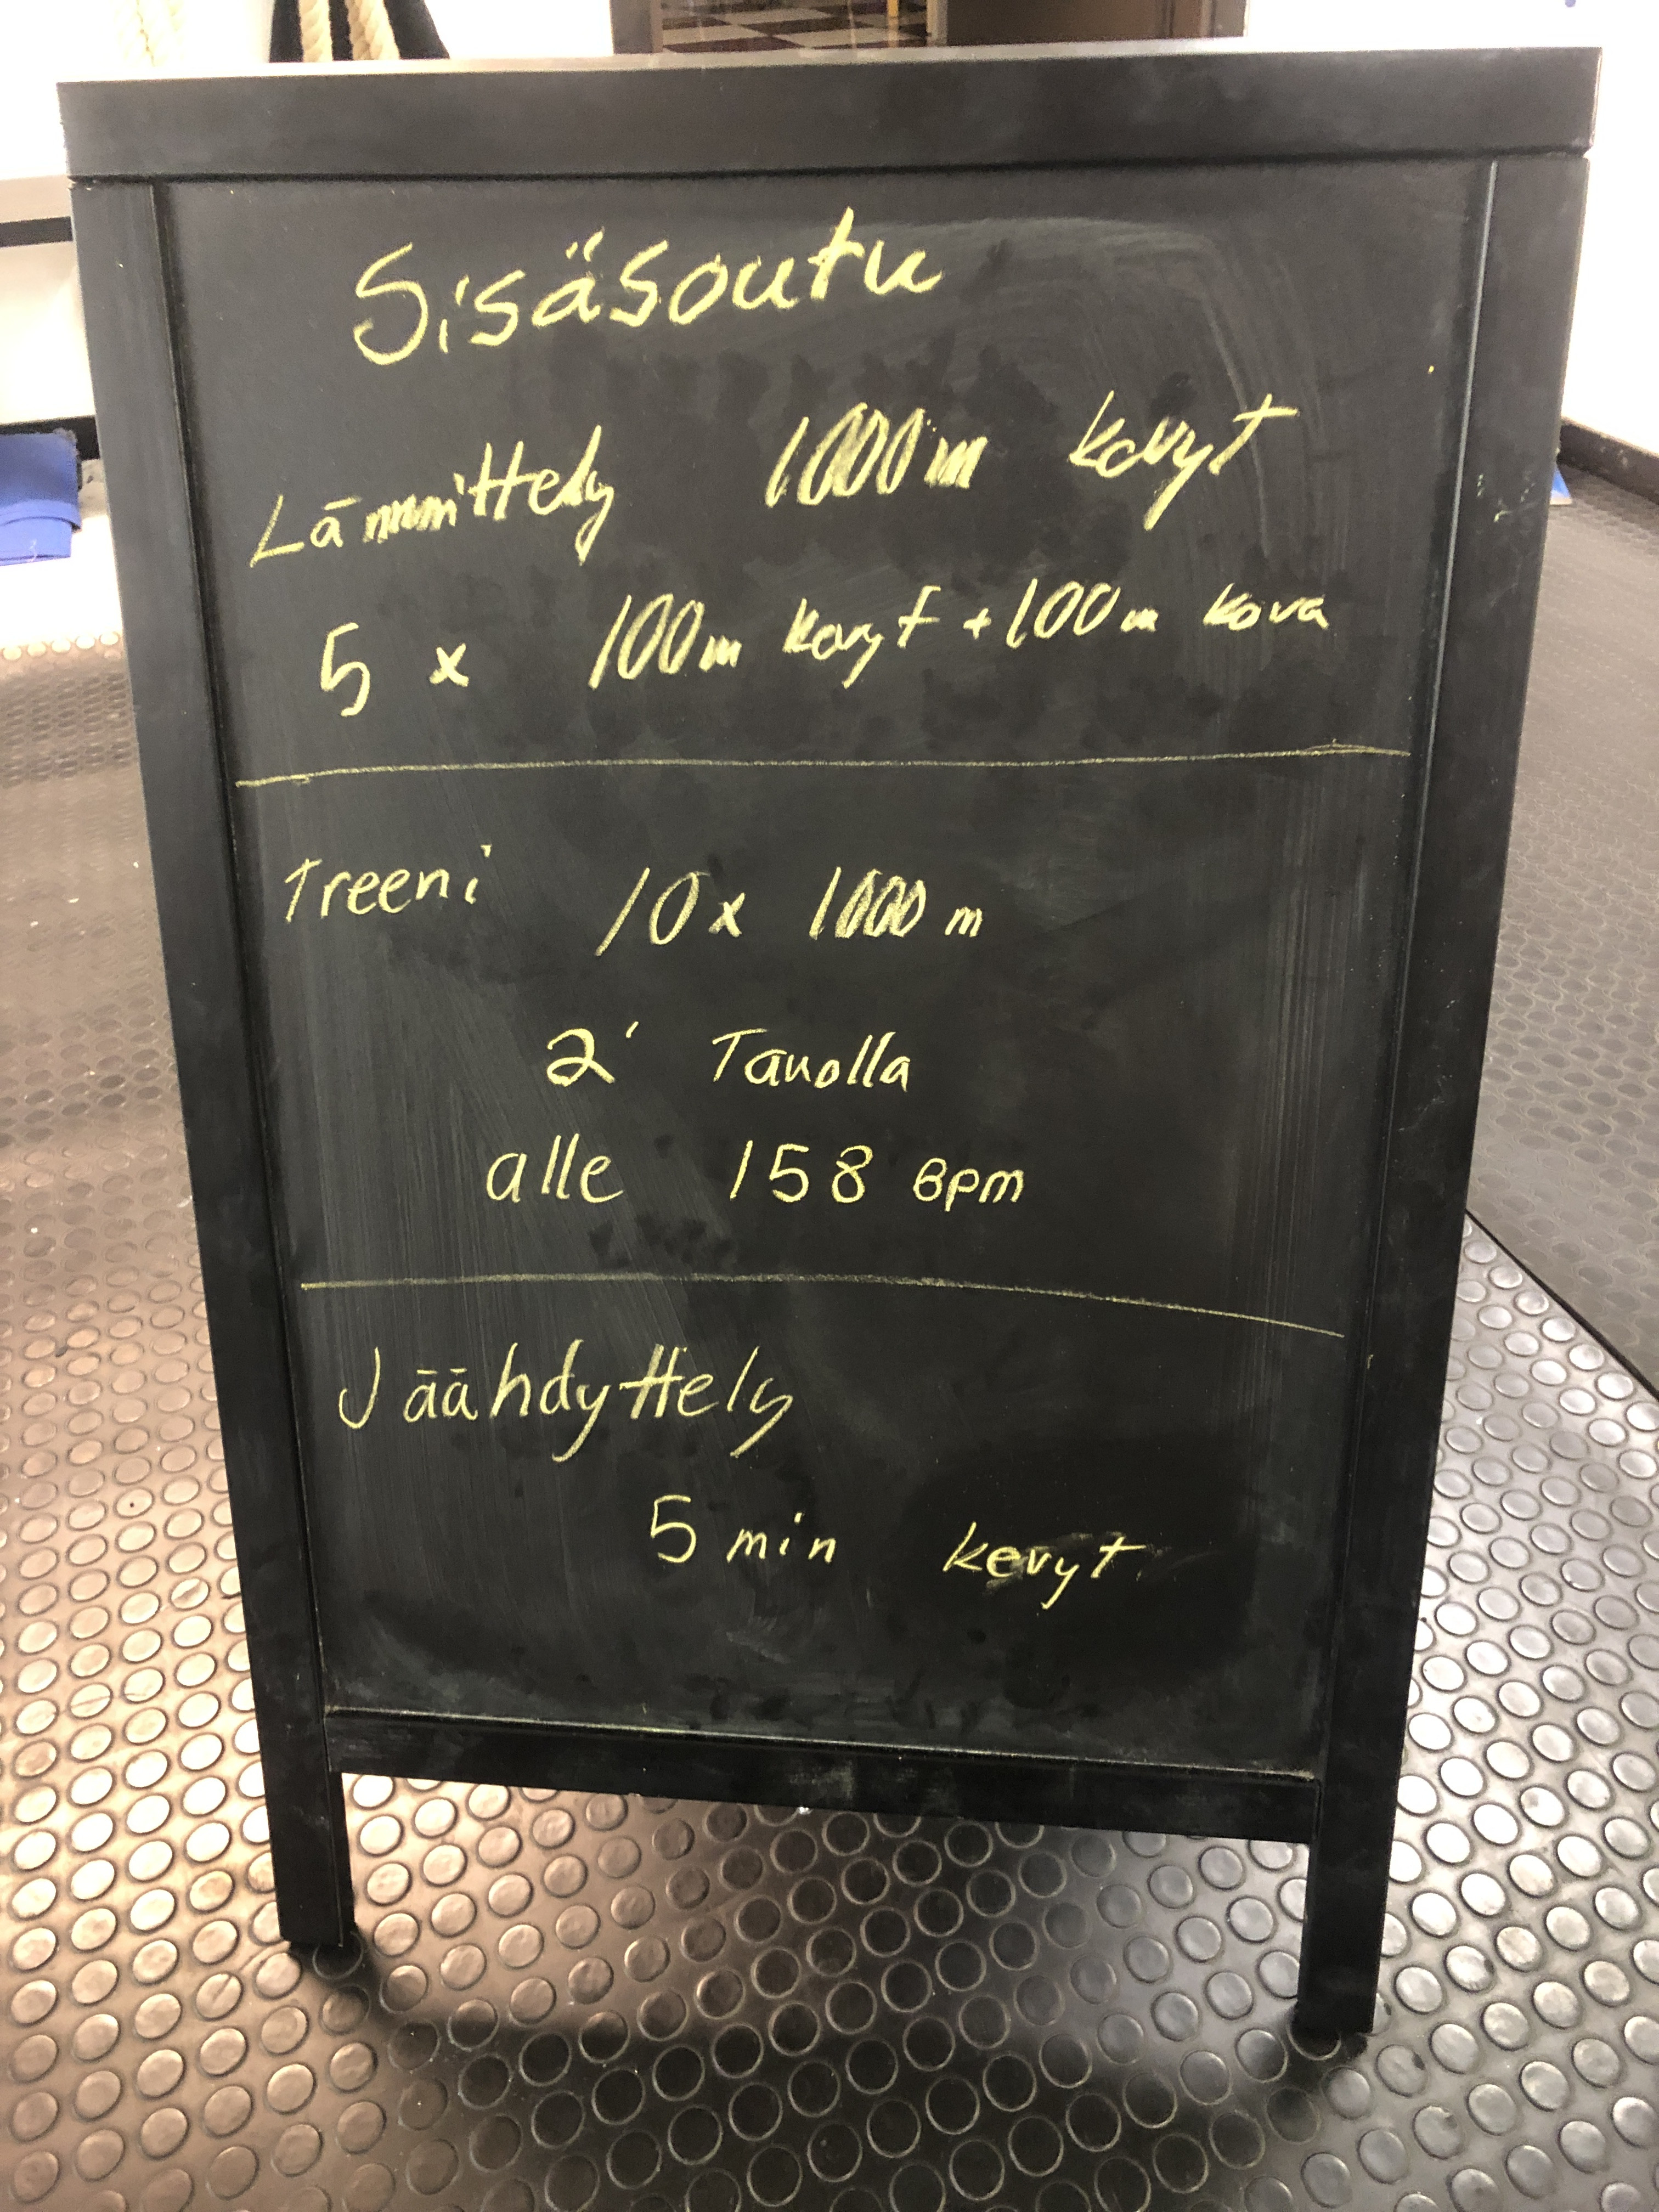 Sisäsoutu
Lämmittely 1000m kevyt
5 x 100m kevyt + 100m kova
Treeni 10x 1000 m
2' Tauolla
alle 158 BPM
Jäähdyttely
5 min kevyt